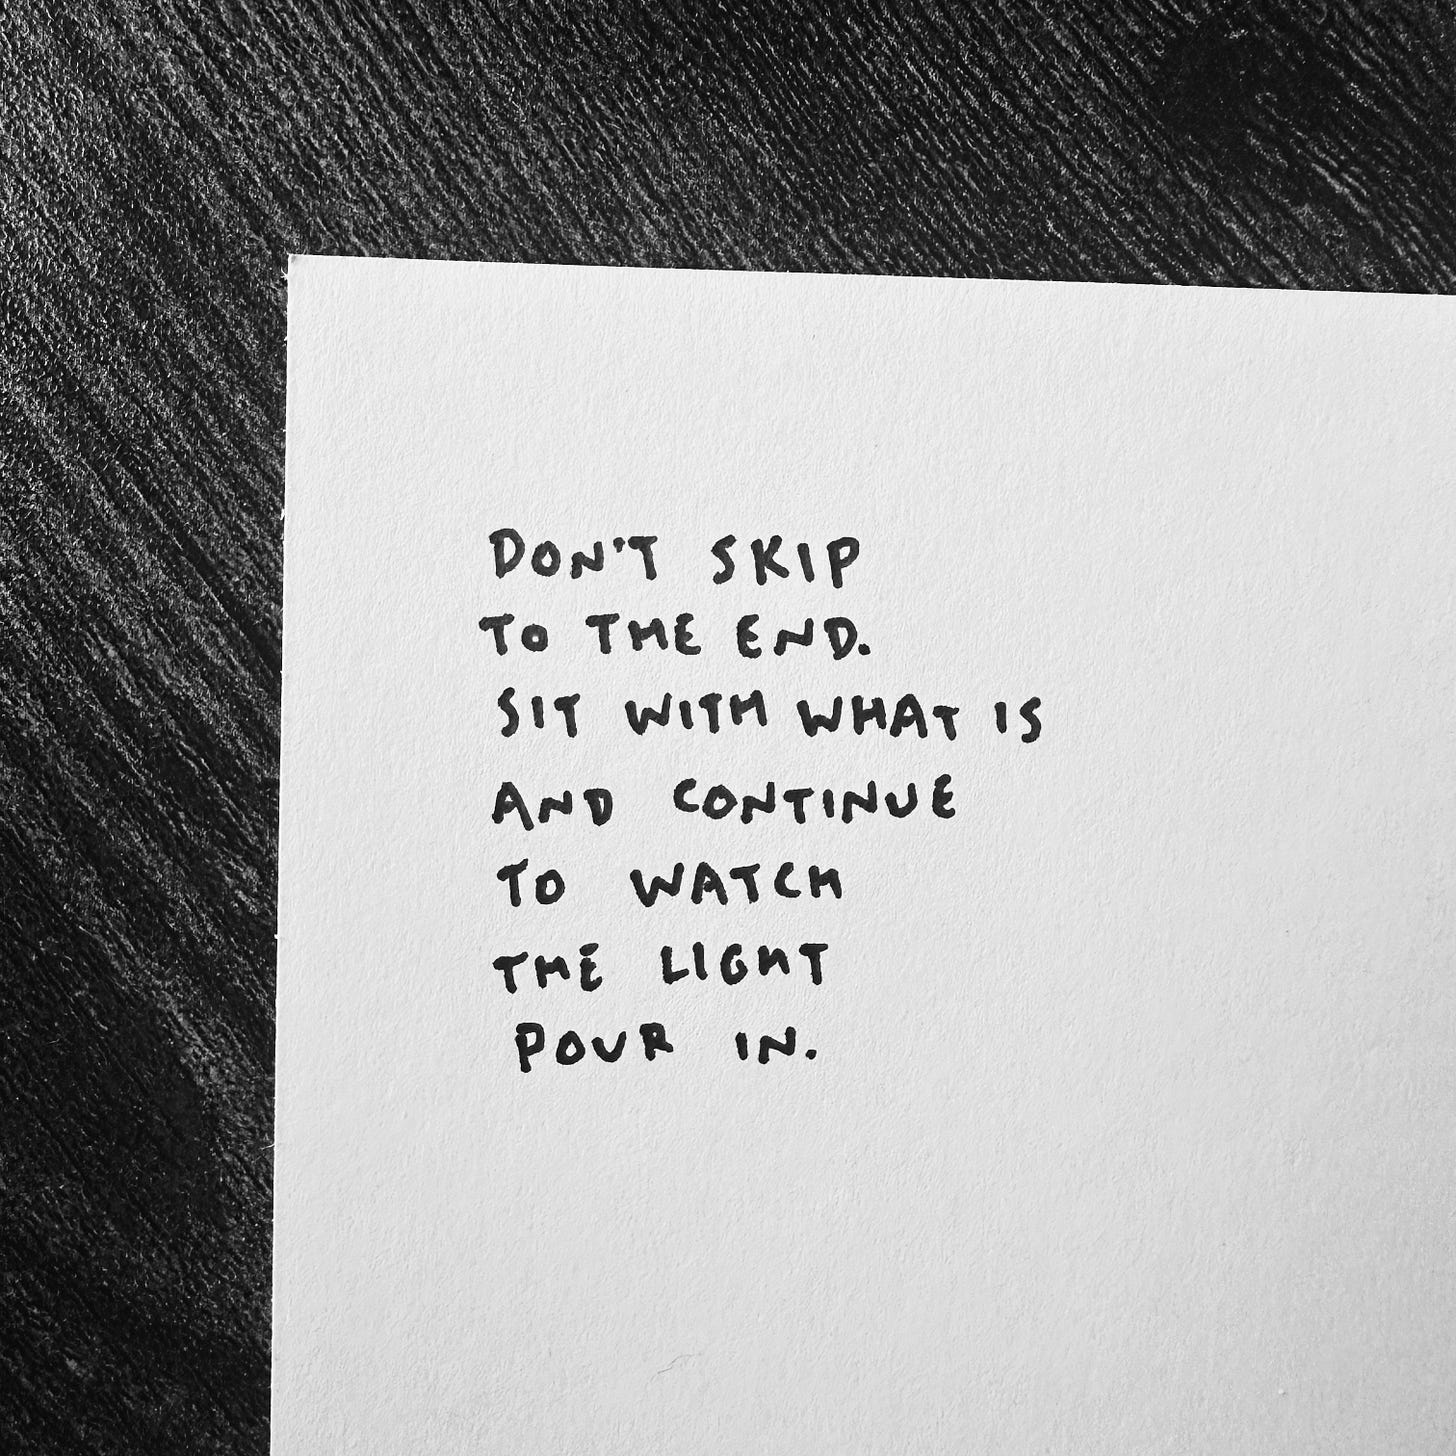 DON'T SKIP
TO THE END.
SIT WITH WHAT IS
AND CONTINUE
TO WATCH
THE LIGHT
POUR IN.